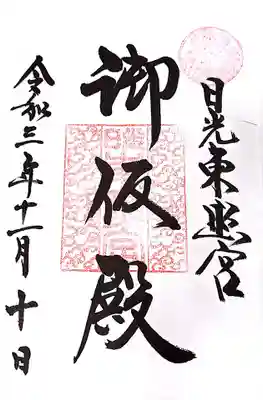 日光東照宮
御仮殿
令和三年十一月十日